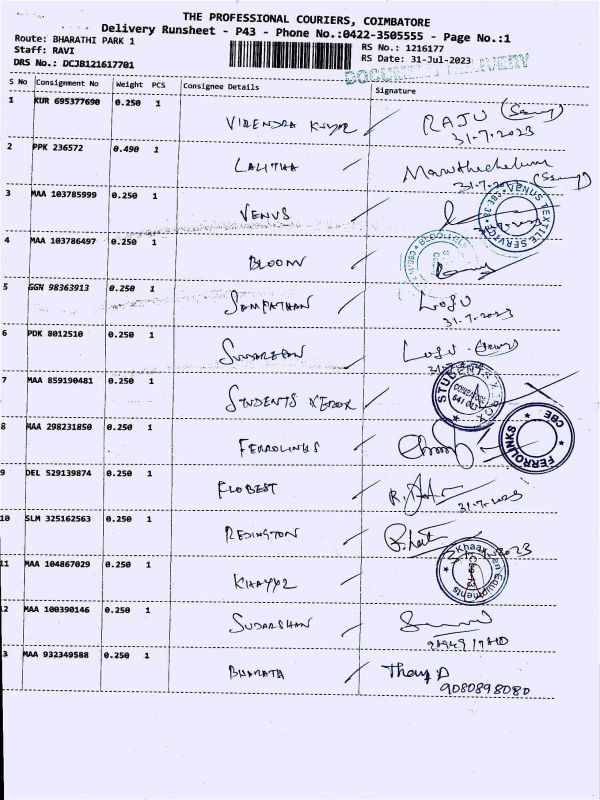 THE PROFESSIONAL COURIERS, COIMBATORE
Delivery Runsheet - P43 - Phone No.:0422-3505555 - Page No.:1
Route: BHARATHI PARK 1
RS No.: 1216177
Staff: RAVI
RS Date: 31-Jul-2023
DRS No.: DCJB121617701
DOCUMENT DELIVERY
S No Consignment No Weight PCS Consignee Details Signature
1 KUR 695377690 0.250 1 VIRENDRA KUMAR RAJU
31-7-2023
2 PPK 236572 0.490 1 LALITHA
3 MAA 103785999 0.250 1 VENUS
4 MAA 103786497 0.250 1 BLOOM
5 GGN 98363913 0.250 1 SAMPATHAN LOGU
31-7-2023
6 PDK 8012510 0.250 1 LOGU
7 MAA 859190481 0.250 1 STUDENTS XEROX
STUDENTS XEROX
COIMBATORE
8 MAA 298231850 0.250 1 FERROLINKS
FERROLINKS CBE
9 DEL 529139874 0.250 1 FLOBEST
31-7-2023
10 SLM 325162563 0.250 1 REDINGTON
11 MAA 104867029 0.250 1
12 MAA 100390146 0.250 1 SUDARSHAN
3 MAA 932349588 0.250 1 BHARATH
9080898080